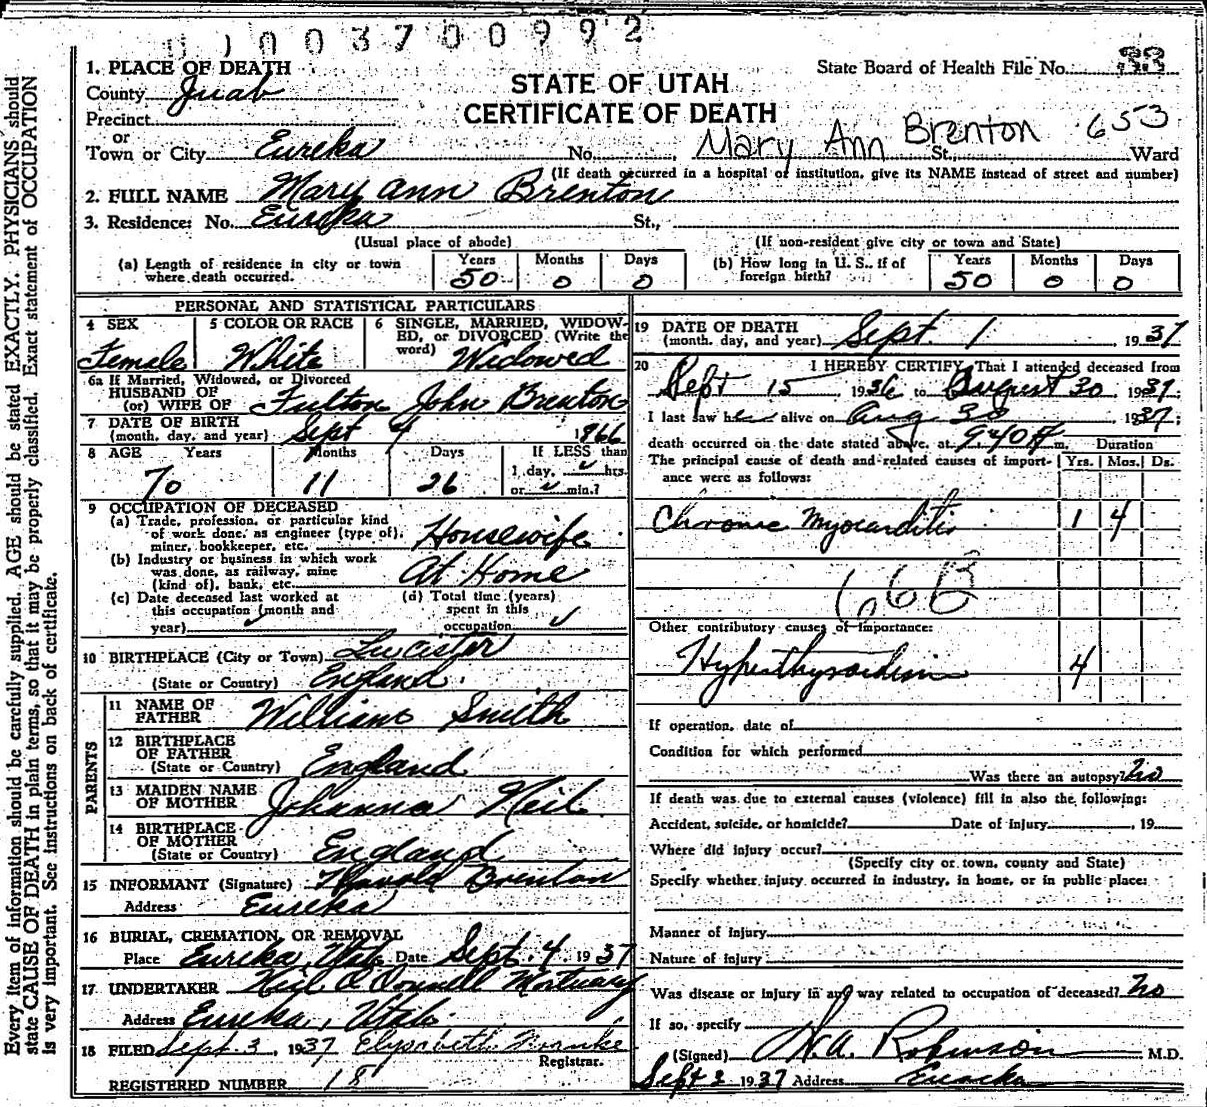 0 1 0 0 3 7 0 0 9 9 2
1. PLACE OF DEATH
State Board of Health File No. 33
County Juab
STATE OF UTAH
CERTIFICATE OF DEATH
Precinct
or
Town or City Eureka No. Mary Ann Brenton 653 St., Ward
(If death occurred in a hospital or institution, give its NAME instead of street and number)
2. FULL NAME Mary Ann Brenton
3. Residence: No. Eureka St.,
(Usual place of abode) (If non-resident give city or town and State)
(a) Length of residence in city or town where death occurred. Years 50 Months 0 Days 0
(b) How long in U. S., if of foreign birth? Years 50 Months 0 Days 0
PERSONAL AND STATISTICAL PARTICULARS
4 SEX Female
5 COLOR OR RACE White
6 SINGLE, MARRIED, WIDOWED, OR DIVORCED (Write the word) Widowed
6a If Married, Widowed, or Divorced
HUSBAND OF
(or) WIFE OF Fulton John Brenton
7 DATE OF BIRTH
(month, day, and year) Sept 4 1866
8 AGE Years 70 Months 11 Days 26 If LESS than 1 day, ✓ hrs. or ✓ min.?
9 OCCUPATION OF DECEASED
(a) Trade, profession, or particular kind of work done, as engineer (type of), miner, bookkeeper, etc. Housewife
(b) Industry or business in which work was done, as railway, mine (kind of), bank, etc. At Home
(c) Date deceased last worked at this occupation (month and year) ✓
(d) Total time (years) spent in this occupation ✓
10 BIRTHPLACE (City or Town)
(State or Country) England
PARENTS
11 NAME OF FATHER William Smith
12 BIRTHPLACE OF FATHER
(State or Country) England
13 MAIDEN NAME OF MOTHER Johanna Neil
14 BIRTHPLACE OF MOTHER
(State or Country) England
15 INFORMANT (Signature) Harold Brenton
Address Eureka
16 BURIAL, CREMATION, OR REMOVAL
Place Eureka, Utah Date Sept. 4 1937
17 UNDERTAKER Neil O'Donnell Mortuary
Address Eureka, Utah
18 FILED Sept. 3, 1937 Elysabeth
Registrar.
REGISTERED NUMBER 18
19 DATE OF DEATH
(month, day, and year) Sept. 1, 1937
20 I HEREBY CERTIFY, That I attended deceased from
Sept 15, 1936 to August 30 1937;
I last saw her alive on Aug 30 1937;
death occurred on the date stated above, at 940 P m. Duration
The principal cause of death and related causes of importance were as follows: Yrs. Mos. Ds.
Chronic Myocarditis 1 4
Other contributory causes of importance:
Hyperthyroidism 4
If operation, date of
Condition for which performed
Was there an autopsy? No
If death was due to external causes (violence) fill in also the following:
Accident, suicide, or homicide? Date of injury , 19
Where did injury occur?
(Specify city or town, county and State)
Specify whether injury occurred in industry, in home, or in public place:
Manner of injury
Nature of injury
Was disease or injury in any way related to occupation of deceased? No
If so, specify
(Signed) W.A. Robinson M.D.
Sept 2 1937 Address Eureka
Every item of information should be carefully supplied. AGE should be stated EXACTLY. PHYSICIANS should
state CAUSE OF DEATH in plain terms, so that it may be properly classified. Exact statement of OCCUPATION
is very important. See instructions on back of certificate.